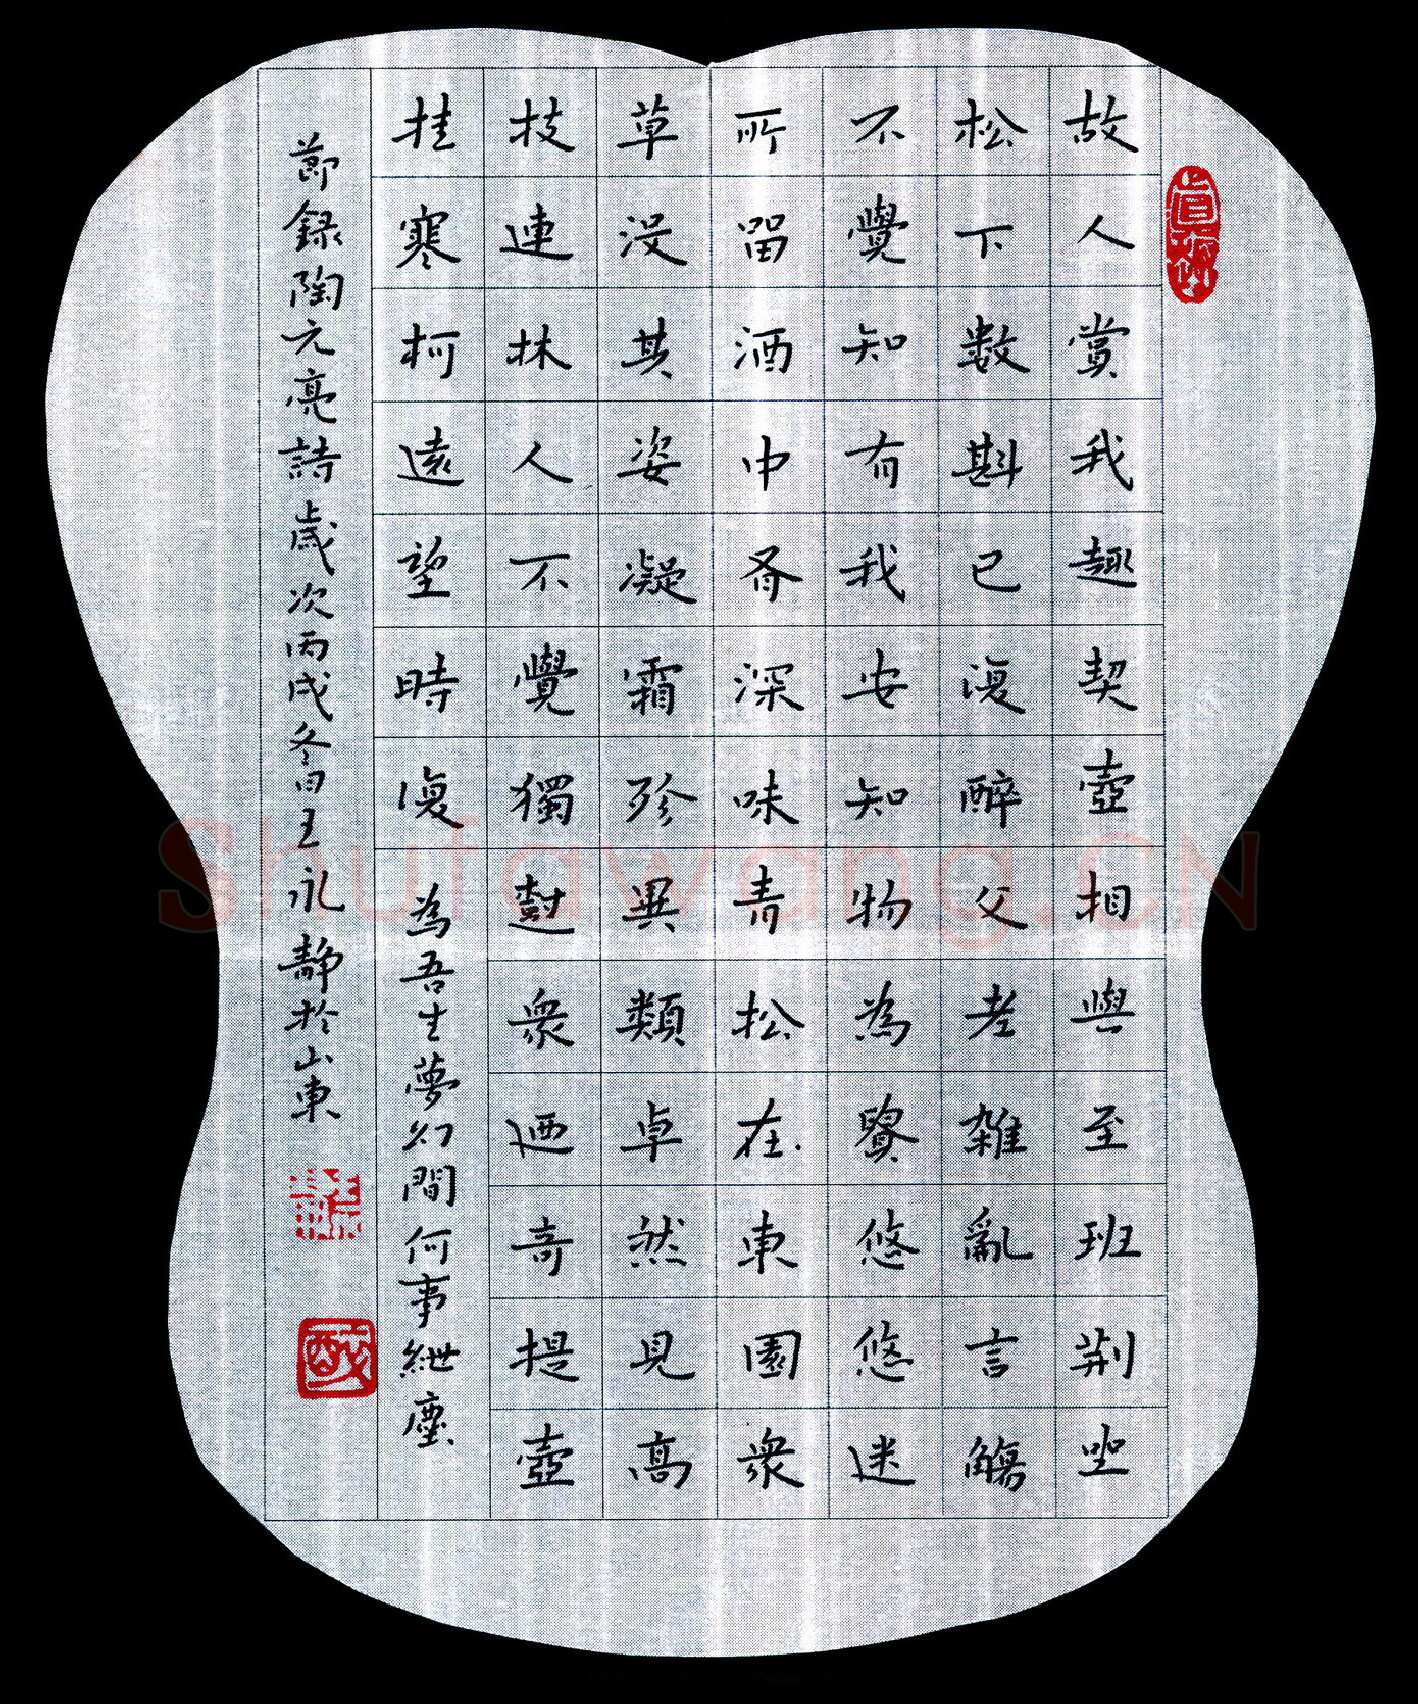 故人賞我趣契壺相與至班荆坐
松下数斟已復醉父老雜亂言觴
不覺知有我安知物為貴悠悠迷
所留酒中有深味青松在東園衆
草没其姿凝霜殄異類卓然見高
枝連林人不覺獨樹衆迺奇提壺
挂寒柯遠望時復為吾生夢幻間何事紲塵
節録陶元亮詩歲次丙戌冬日王永靜於山東
Shufawang.CN